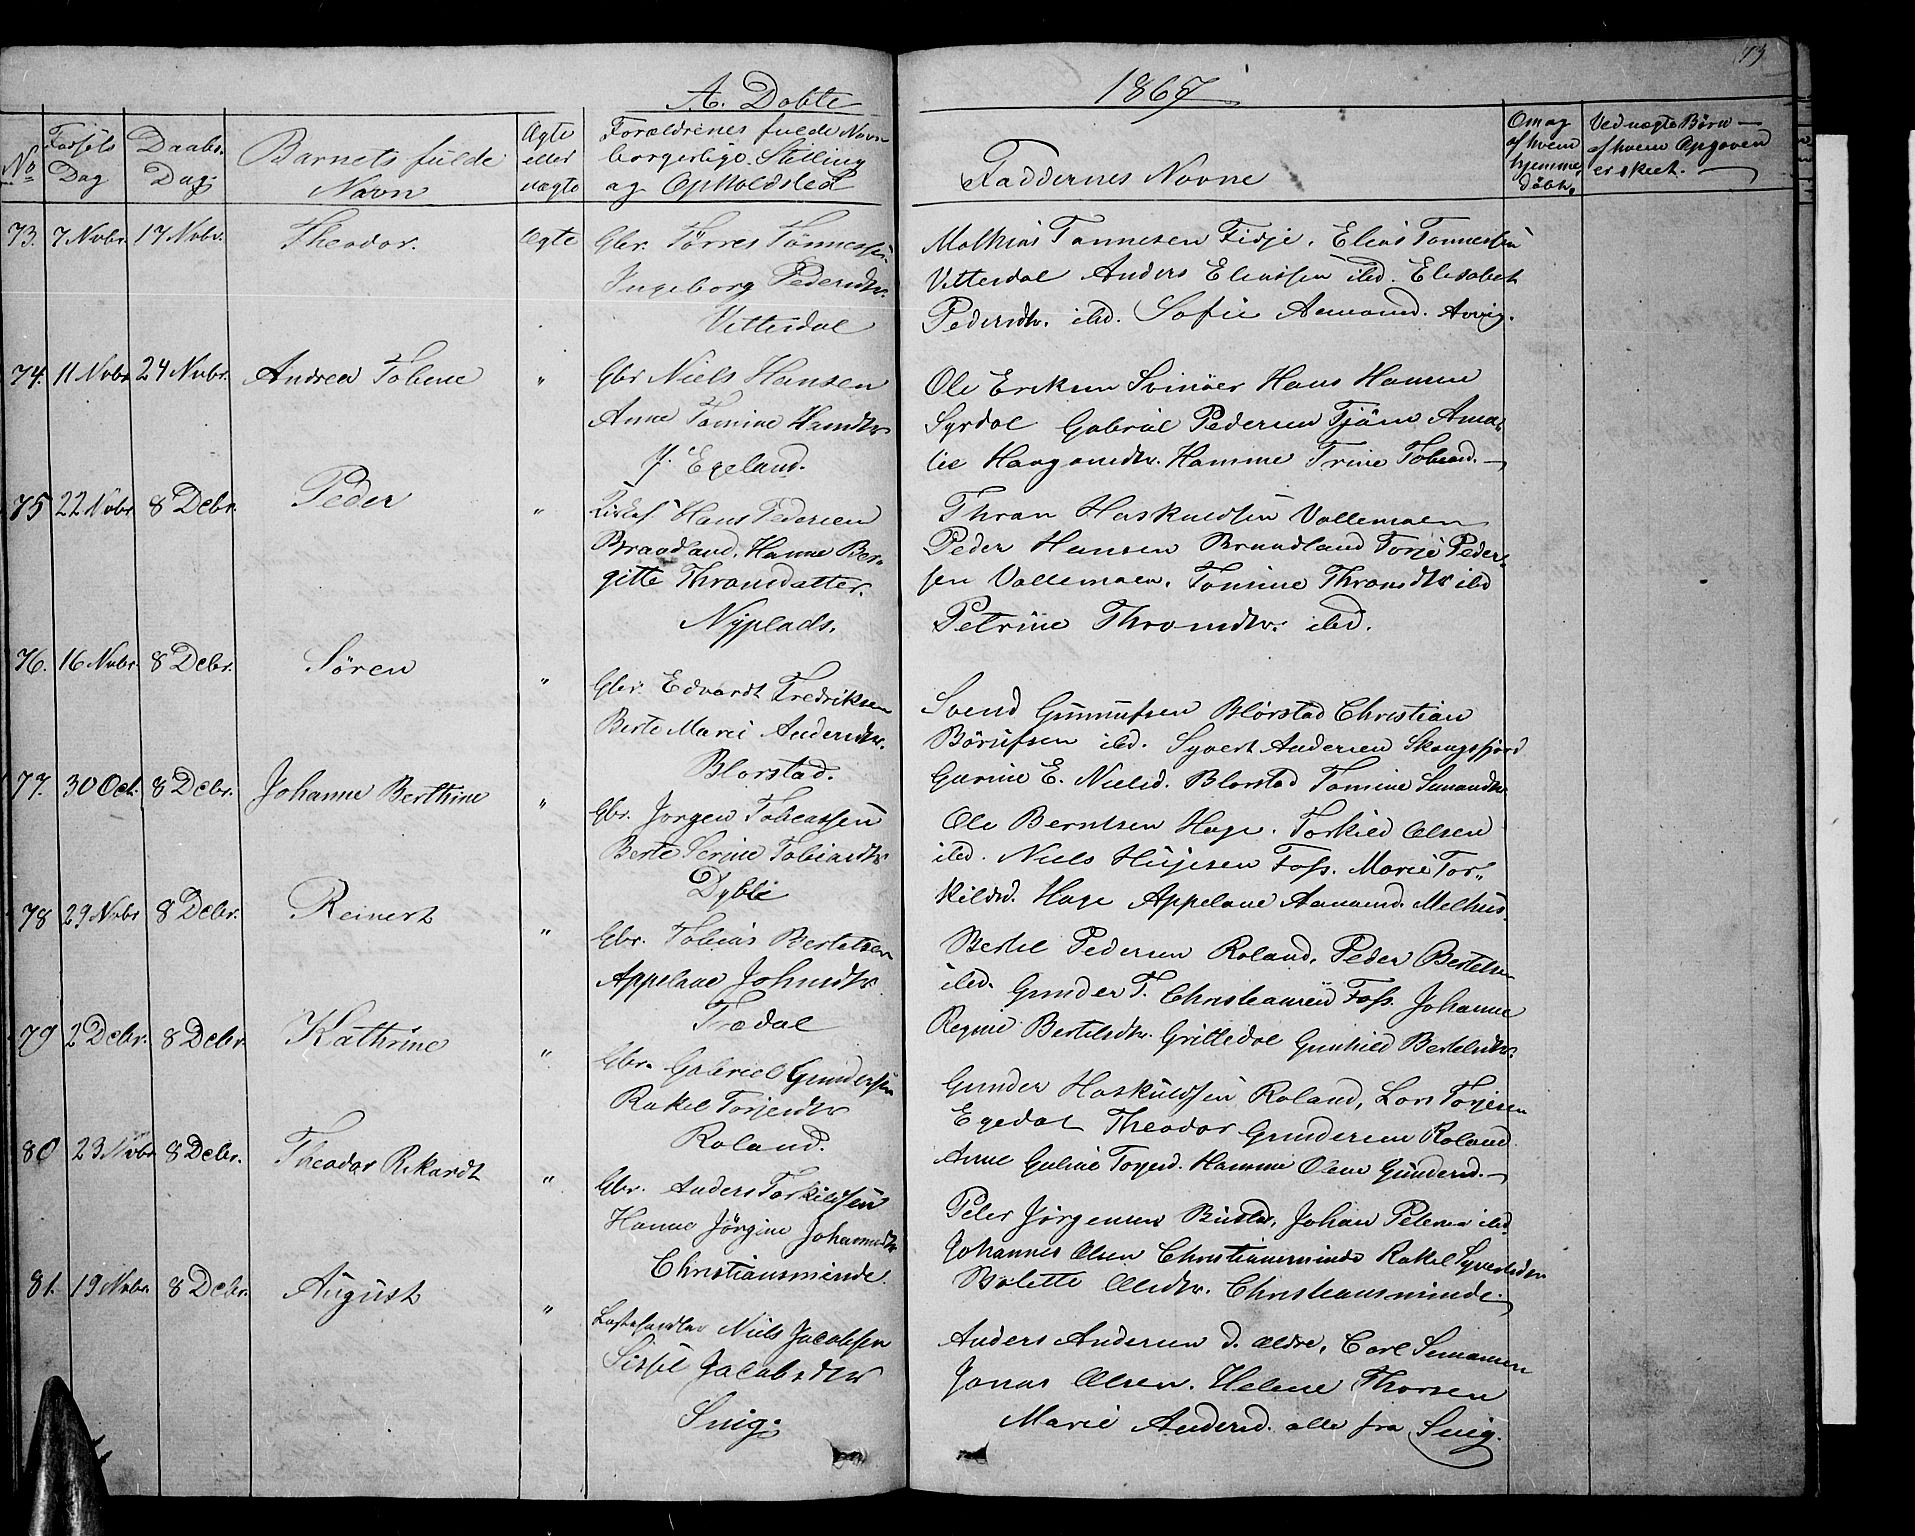 73
A. Døbte
1867
No
Fødsels Dag
Daabs Dag
Barnets fulde Navn
Ægte eller uægte
Forældrenes fulde Navn
borgerlige Stilling
og Opholdsted
Faddernes Navne
Om og af hvem hjemmedøbt.
Ved uægte Børn af hvem Opgaven er skeet.
73. 7 Novbr. 17 Novbr. Theodor. Ægte
Gbr. Tørres Tønnessen
Ingeborg Pedersdtr.
Vittersdal
Mathias Tønnesen Fidje. Elias Tønnessen
Vittersdal Anders Eliassen ibd. Elisabet
Pedersdtr. ibd. Sofie Aamond. Awig.
74. 11 Novbr 24 Novbr. Andrea Tobine "
Gbr Niels Hansen
Anne Tomine Hansdtr
Y. Egeland.
Ole Eriksen Svinøer Hans Hansen
Syrdal Gabriel Pedersen Tjøm Ama-
lie Haagensdtr. Hamme Trine Tobiasd.
75 22 Novbr 8 Debr. Peder "
Hans Pedersen
Braadland. Hanne Ber-
gitte Thronsdatter.
Nyplads.
Thron Haskuldsen Vollemoen
Peder Hansen Braadland Torje Peder-
sen Vollemoen. Tomine Thronsdtr ibd
Petrine Thronsdtr. ibd.
76. 16 Novbr. 8 Debr. Søren "
Gbr. Edvardt Fredriksen
Berte Marie Andersdtr.
Blørstad.
Svend Gunnufsen Blørstad Christian
Børufsen ibd. Syvert Andersen Skougsfjord
Gurine E. Nielsd. Blørstad Tomine Samondtr
77. 30 Oct. 8 Debr. Johanne Berthine "
Gbr. Jørgen Tobiassen
Berte Serine Tobiasdtr
Dybli
Ole Berntsen Hage. Torkild Olsen
ibd. Niels Foss. Marie Tor-
kildsd. Hage Appelane Aanonsd. Melhus.
78 29 Novbr 8 Debr. Reinert "
Gbr. Tobias Bertelsen
Appelane Johnsdtr
Trædal
Bertel Pedersen Roland. Peder Bertelsen
ibd. Gunder T. Christiansen Foss. Johanne
Regine Bertelsdtr. Grittedal Gunhild Bertelsdtr.
79 2 Debr. 8 Debr. Kathrine "
Gbr. Gabriel Gundersen
Rakel Torjesdtr
Roland.
Gunder Haskuldsen Roland, Lars Torjesen
Egedal Theodor Gundersen Roland.
Anne Guline Torjesd. Hamme Olene Gundersd.
80 23 Novbr 8 Debr. Theodor Rikardt "
Gbr. Anders Torkildsen
Hanne Jørgine Johannesdtr
Christiansminde.
Peter Jørgensen Johan Petersen ibd
Johannes Olsen Christiansminde Rakel Syvertsdtr
Bolette Olsdtr. Christiansminde.
81. 19 Novbr. 8 Debr. August "
Niels Jacobsen
Sissel Jacobsdtr
Snig.
Anders Andersen d. ældre, Carl Simonsen
Jonas Olsen. Helene Thorsen
Marie Andersd. alle fra Snig.